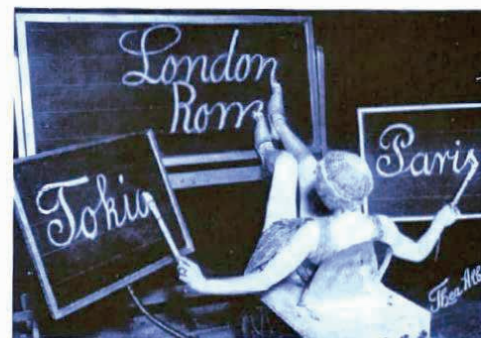 London
Rom
Tokio
Paris
Thea Alb